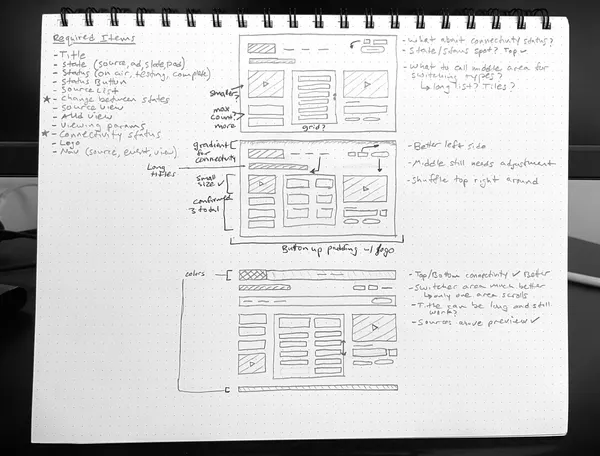 Required Items
- Title
- State (source, ad, slate, pod)
- Status (on air, testing, complete)
- Status Button
- Source List
★ - Change between states
- Source View
- Add View
- Viewing params
★ - Connectivity status
- Logo
- Nav (source, event, view)
smaller?
max count?
more
grid?
- What about connectivity status?
- State/Status spot? Top ✓
- What to call middle area for
switching types?
↳ long list? Tiles?
gradient for
connectivity
Long
titles
small
size ✓
confirmed
3 total
Button up padding w/ logo
- Better left side
- Middle still needs adjustment
- Shuffle top right around
colors
- Top/Bottom connectivity ✓ Better
- Switcher area much better
↳ only one area scrolls
- Title can be long and still
work?
- Sources above preview ✓